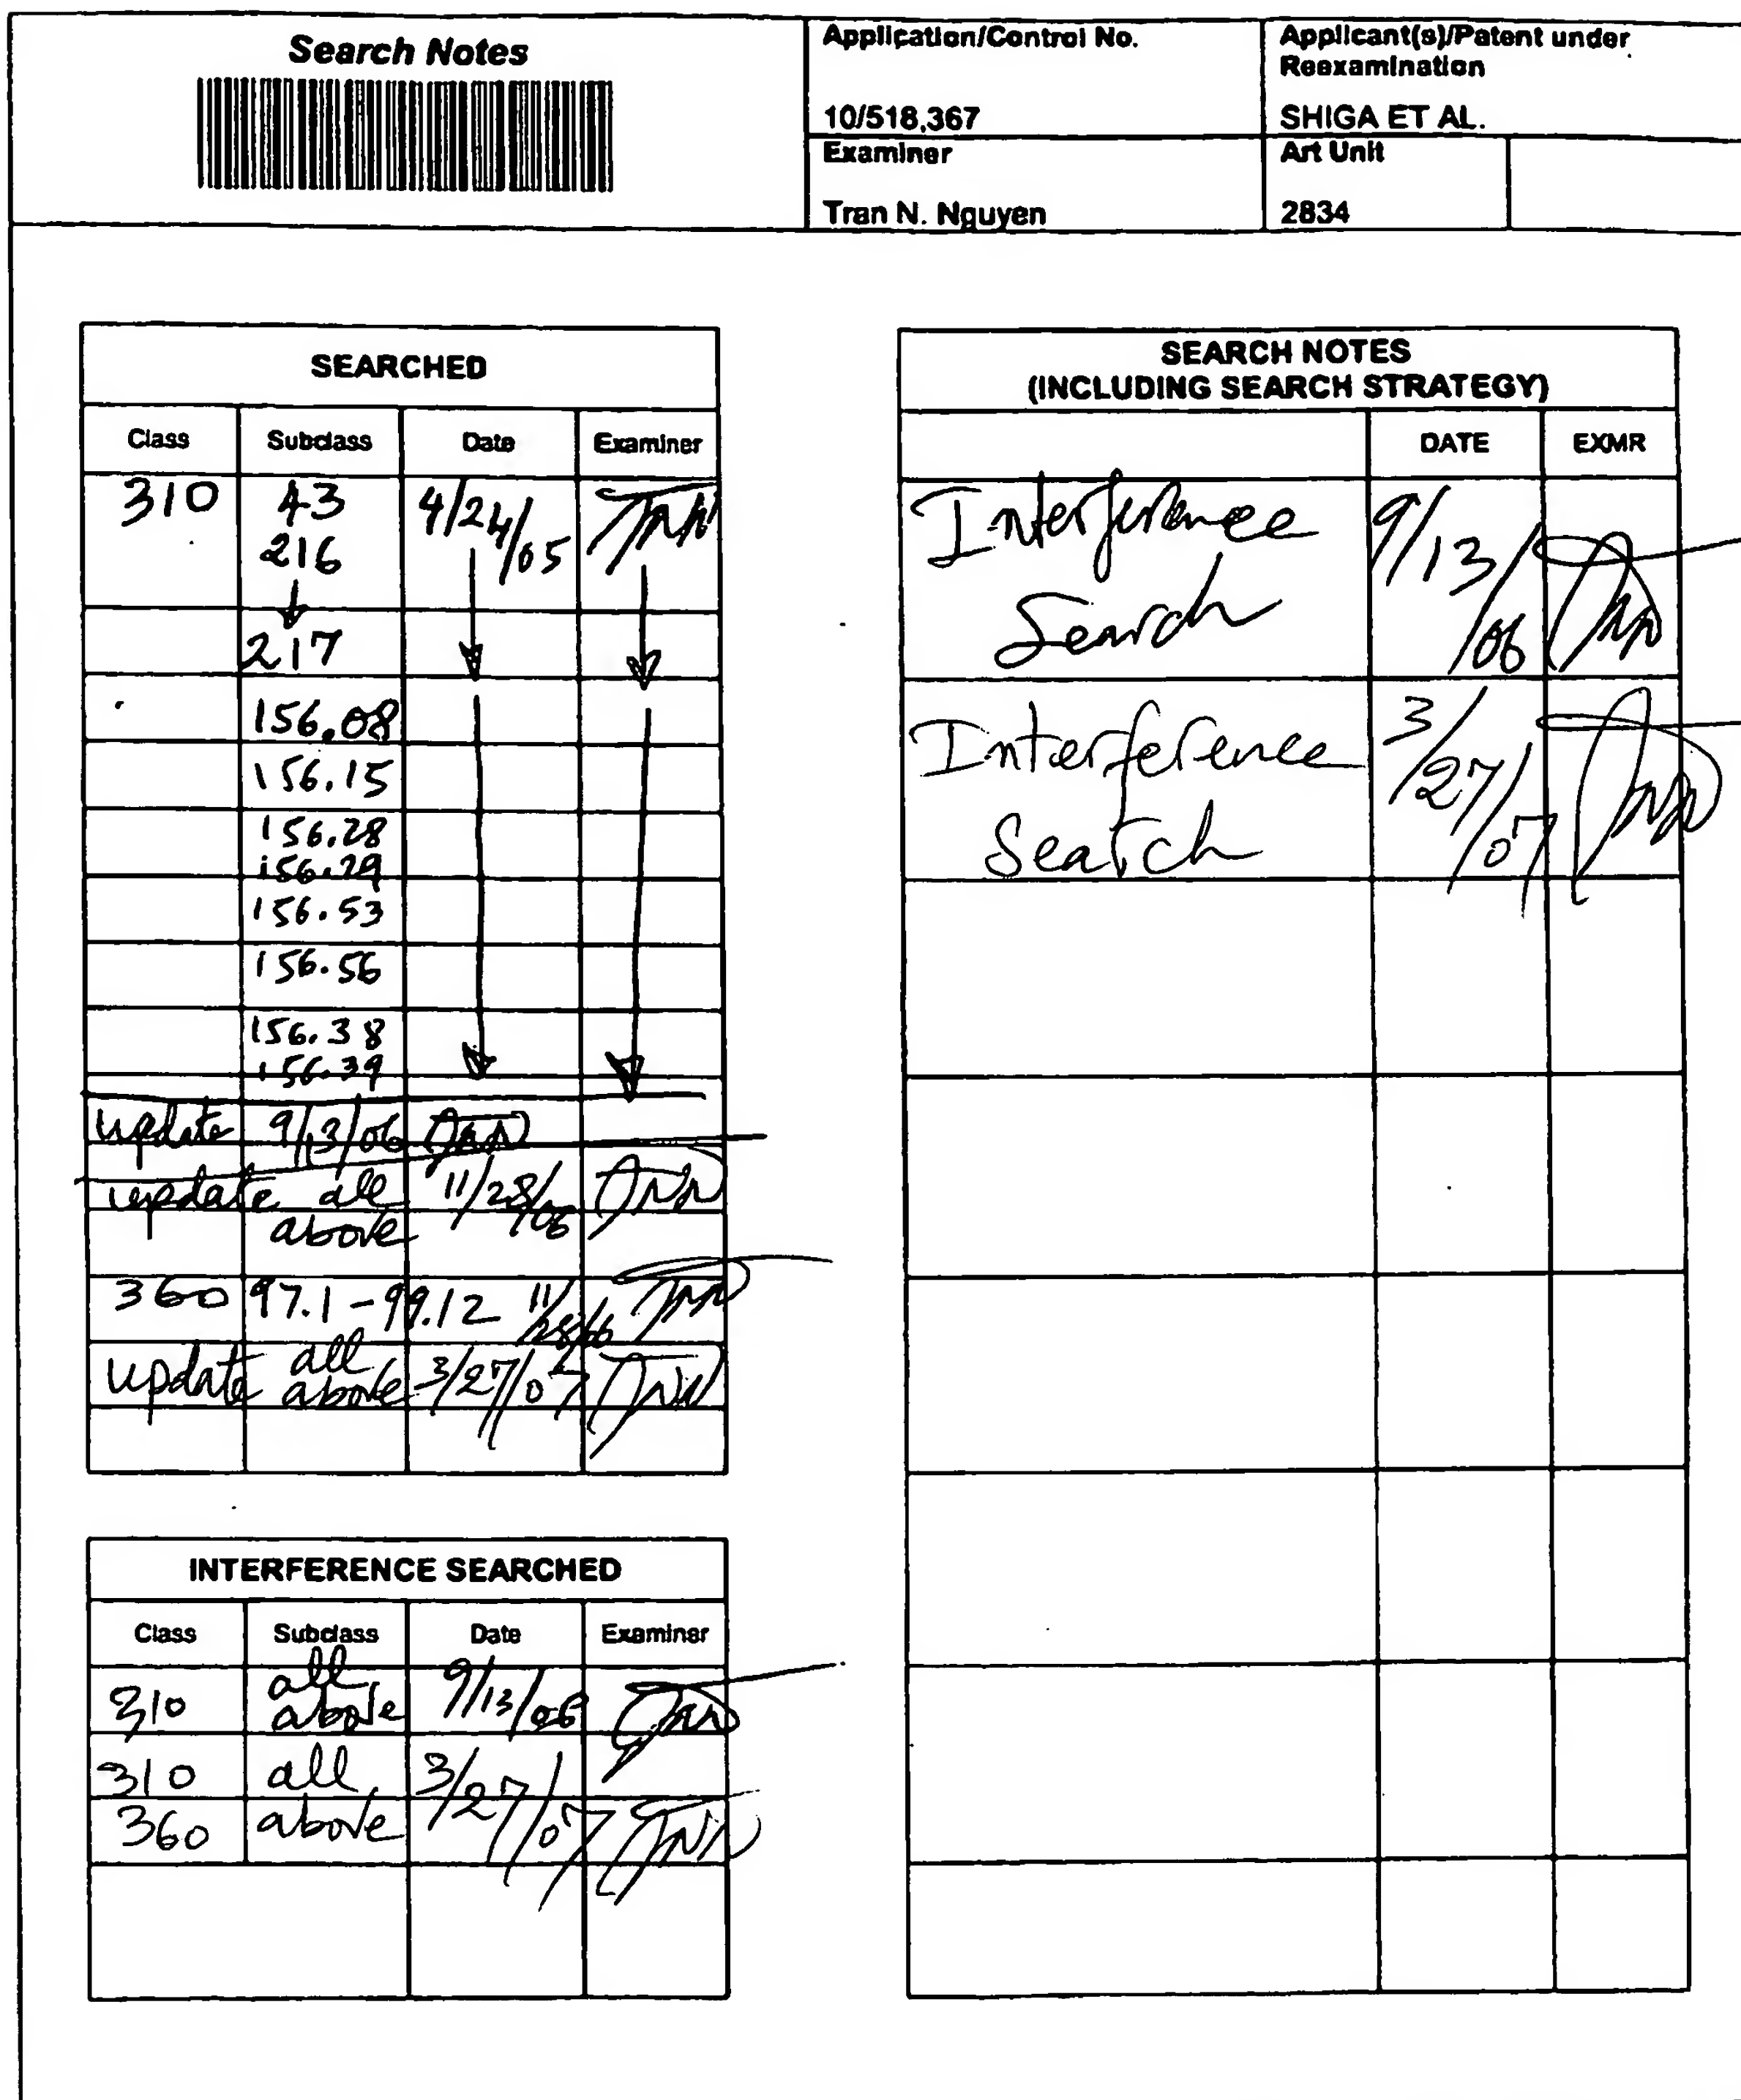 Search Notes
Application/Control No.
10/518,367
Applicant(s)/Patent under
Reexamination
SHIGA ET AL.
Examiner
Tran N. Nguyen
Art Unit
2834
SEARCHED
Class Subclass Date Examiner
310 43 4/24/05 TNN
216
217
156.08
156.15
156.28
156.29
156.53
156.56
156.38
156.39
update 9/13/06 TNN
update all 11/28/06 TNN
above
360 97.1-99.12 11/28/06 TNN
update all above 3/27/07 TNN
INTERFERENCE SEARCHED
Class Subclass Date Examiner
310 all above 9/13/06 TNN
310 all 3/27/07 TNN
360 above
SEARCH NOTES
(INCLUDING SEARCH STRATEGY)
DATE EXMR
Interference 9/13/06 TNN
Search
Interference 3/27/07 TNN
Search